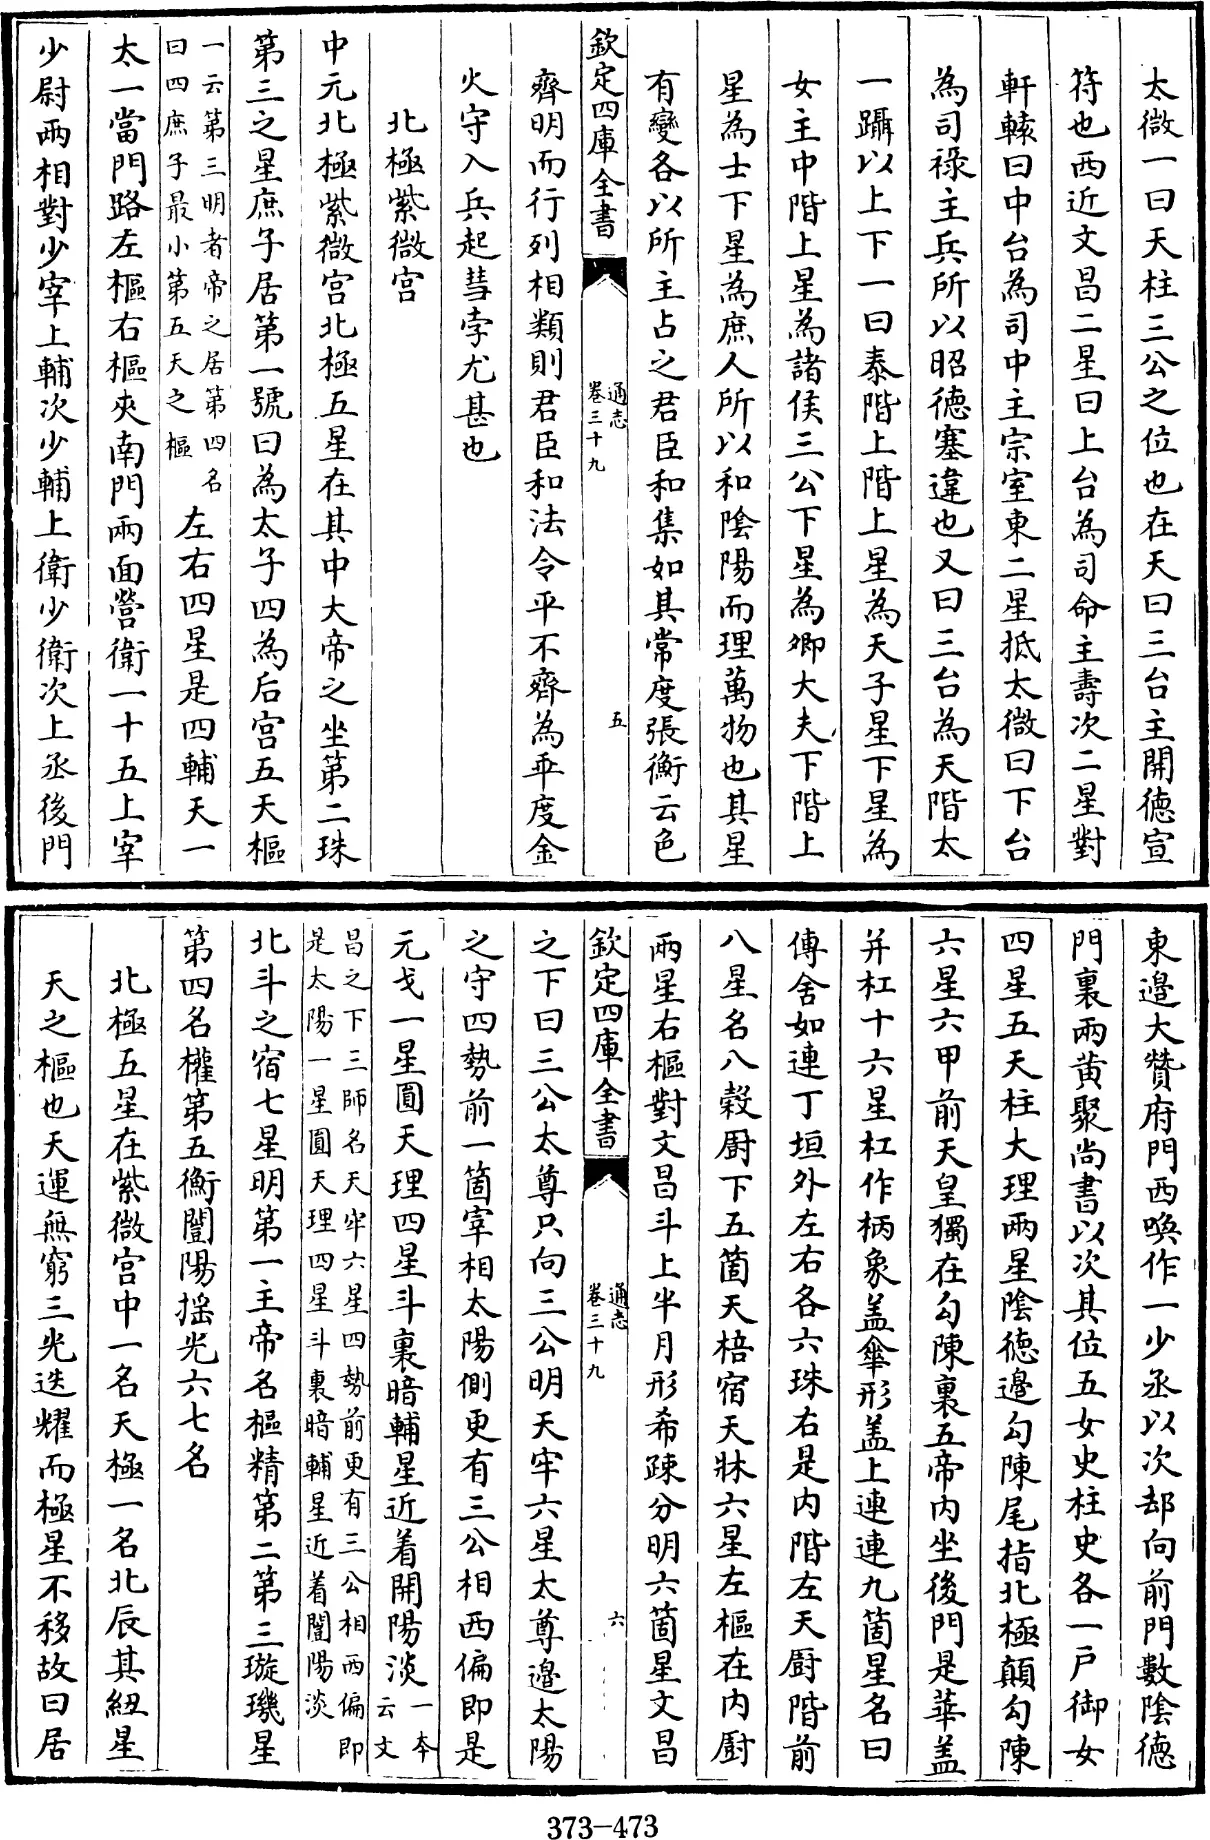 太微一曰天柱三公之位也在天曰三台主開德宣
符也西近文昌二星曰上台為司命主壽次二星對
軒轅曰中台為司中主宗室東二星抵太微曰下台
為司祿主兵所以昭德塞違也又曰三台為天階太
一躡以上下一曰泰階上階上星為天子星下星為
女主中階上星為諸侯三公下星為卿大夫下階上
星為士下星為庶人所以和陰陽而理萬物也其星
有變各以所主占之君臣和集如其常度張衡云色
欽定四庫全書
通志
卷三十九
五
齊明而行列相類則君臣和法令平不齊為乖度金
火守入兵起彗孛尤甚也
北極紫微宮
中元北極紫微宮北極五星在其中大帝之坐第二珠
第三之星庶子居第一號曰為太子四為后宮五天樞
一云第三明者帝之居第四名
曰四庶子最小第五天之樞
左右四星是四輔天一
太一當門路左樞右樞夾南門兩面營衛一十五上宰
少尉兩相對少宰上輔次少輔上衛少衛次上丞後門
東邉大贊府門西喚作一少丞以次却向前門數陰德
門裏兩黄聚尚書以次其位五女史柱史各一戶御女
四星五天柱大理兩星陰德邉勾陳尾指北極顛勾陳
六星六甲前天皇獨在勾陳裏五帝内坐後門是華盖
并杠十六星杠作柄象盖傘形盖上連連九箇星名曰
傳舍如連丁垣外左右各六珠右是内階左天厨階前
八星名八榖厨下五箇天棓宿天牀六星左樞在内厨
兩星右樞對文昌斗上半月形希疎分明六箇星文昌
欽定四庫全書
通志
卷三十九
六
之下曰三公太尊只向三公明天牢六星太尊邉太陽
之守四勢前一箇宰相太陽側更有三公相西偏即是
元戈一星圓天理四星斗裏暗輔星近着開陽淡
一本
云文
昌之下三師名天牢六星四勢前更有三公相西偏即
是太陽一星圓天理四星斗裏暗輔星近着闓陽淡
北斗之宿七星明第一主帝名樞精第二第三璇璣星
第四名權第五衡闓陽揺光六七名
北極五星在紫微宮中一名天極一名北辰其紐星
天之樞也天運無窮三光迭耀而極星不移故曰居
373-473